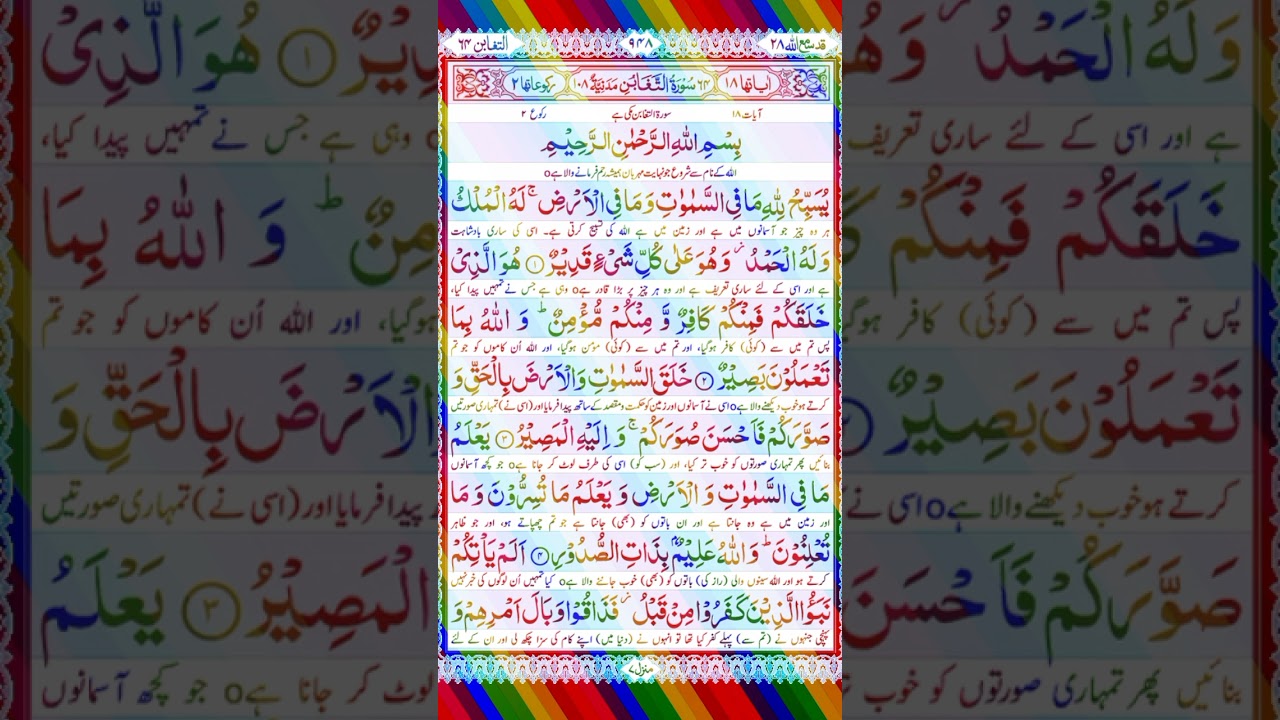 قد سمع الله ۲۸
۹۴۸
التغابن ۶۴
اٰیاتها ۱۸
۶۴ سُوْرَةُ التَّغَابُنِ مَدَنِیَّةٌ ۱۰۸
رکوعاتها ۲
آیات ۱۸
سورة التغابن مکی ہے
رکوع ۲
بِسْمِ اللّٰهِ الرَّحْمٰنِ الرَّحِیْمِ
اللہ کے نام سے شروع جو نہایت مہربان ہمیشہ رحم فرمانے والا ہےo
یُسَبِّحُ لِلّٰهِ مَا فِی السَّمٰوٰتِ وَ مَا فِی الْاَرْضِ ۚ لَهُ الْمُلْكُ
ہر وہ چیز جو آسمانوں میں ہے اور زمین میں ہے اللہ کی تسبیح کرتی ہے۔ اسی کی ساری بادشاہت
وَ لَهُ الْحَمْدُ ؗ وَ هُوَ عَلٰى كُلِّ شَیْءٍ قَدِیْرٌ ۱ هُوَ الَّذِیْ
ہے اور اسی کے لئے ساری تعریف ہے اور وہ ہر چیز پر بڑا قادر ہےo وہی ہے جس نے تمہیں پیدا کیا،
خَلَقَكُمْ فَمِنْكُمْ كَافِرٌ وَّ مِنْكُمْ مُّؤْمِنٌ ؕ وَ اللّٰهُ بِمَا
پس تم میں سے (کوئی) کافر ہوگیا، اور تم میں سے (کوئی) مؤمن ہوگیا، اور اللہ اُن کاموں کو جو تم
تَعْمَلُوْنَ بَصِیْرٌ ۲ خَلَقَ السَّمٰوٰتِ وَ الْاَرْضَ بِالْحَقِّ وَ
کرتے ہو خوب دیکھنے والا ہےo اسی نے آسمانوں اور زمین کو حکمت و مقصد کے ساتھ پیدا فرمایا اور (اسی نے) تمہاری صورتیں
صَوَّرَكُمْ فَاَحْسَنَ صُوَرَكُمْ ۚ وَ اِلَیْهِ الْمَصِیْرُ ۳ یَعْلَمُ
بنائیں پھر تمہاری صورتوں کو خوب تر کیا، اور (سب کو) اسی کی طرف لوٹ کر جانا ہےo جو کچھ آسمانوں
مَا فِی السَّمٰوٰتِ وَ الْاَرْضِ وَ یَعْلَمُ مَا تُسِرُّوْنَ وَ مَا
اور زمین میں ہے وہ جانتا ہے اور ان باتوں کو (بھی) جانتا ہے جو تم چھپاتے ہو، اور جو ظاہر
تُعْلِنُوْنَ ؕ وَ اللّٰهُ عَلِیْمٌۢ بِذَاتِ الصُّدُوْرِ ۴ اَلَمْ یَاْتِكُمْ
کرتے ہو اور اللہ سینوں والی (راز کی) باتوں کو (بھی) خوب جاننے والا ہےo کیا تمہیں اُن لوگوں کی خبر نہیں
نَبَؤُا الَّذِیْنَ كَفَرُوْا مِنْ قَبْلُ ؗ فَذَاقُوْا وَبَالَ اَمْرِهِمْ وَ
پہنچی جنہوں نے (تم سے) پہلے کفر کیا تھا تو انہوں نے (دنیا میں) اپنے کام کی سزا چکھ لی اور ان کے لئے
منزل ۷